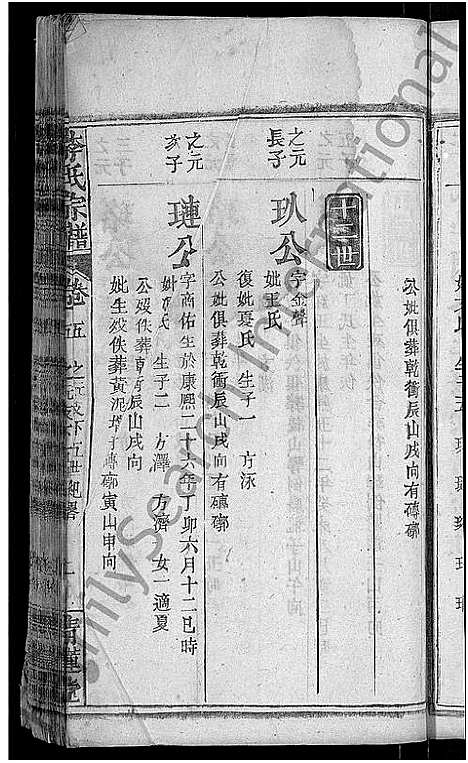 公妣俱葬乾衝辰山戌向有磚槨
十二世
之元
長子
玐公
字金聲
妣王氏
復妣夏氏 生子一 方泳
公妣俱葬乾衝辰山戌向有磚槨
之元
次子
璉公
字商佑生於康熙二十六年丁卯六月十二巳時
生子二 方澤 方濟 女一適夏
公歿佚葬 辰山戌向
妣生歿佚葬黃泥 磚槨寅山申向
李氏宗譜
卷五
FamilySearch International